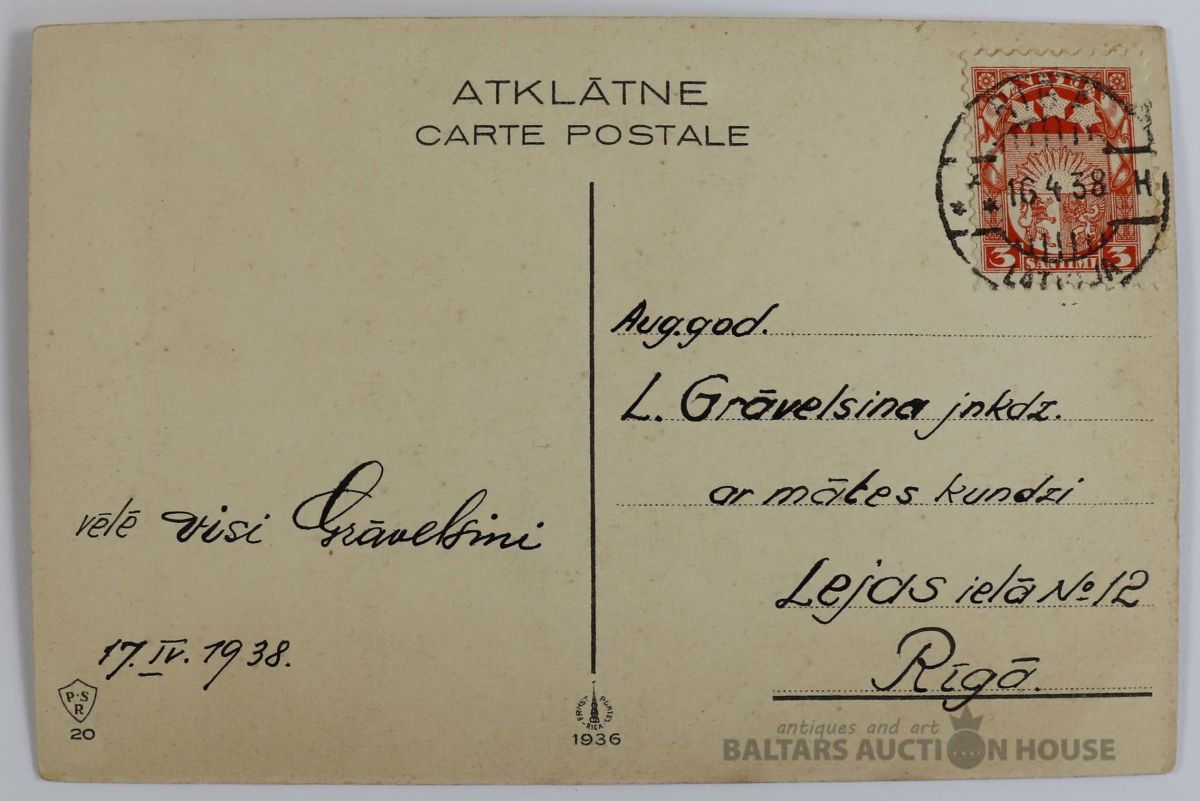 ATKLĀTNE
CARTE POSTALE
LATVIJA
16.4.38 H
LATVIJA
3 SANTIMI 3
Aug.god.
L. Grāvelsina jnkdz.
ar mātes kundzi
Lejas ielā No 12
Rīgā.
vēlē visi Grāvelsini
17.IV.1938.
P.S
R
20
RIGA
1936
antiques and art
BALTARS AUCTION HOUSE